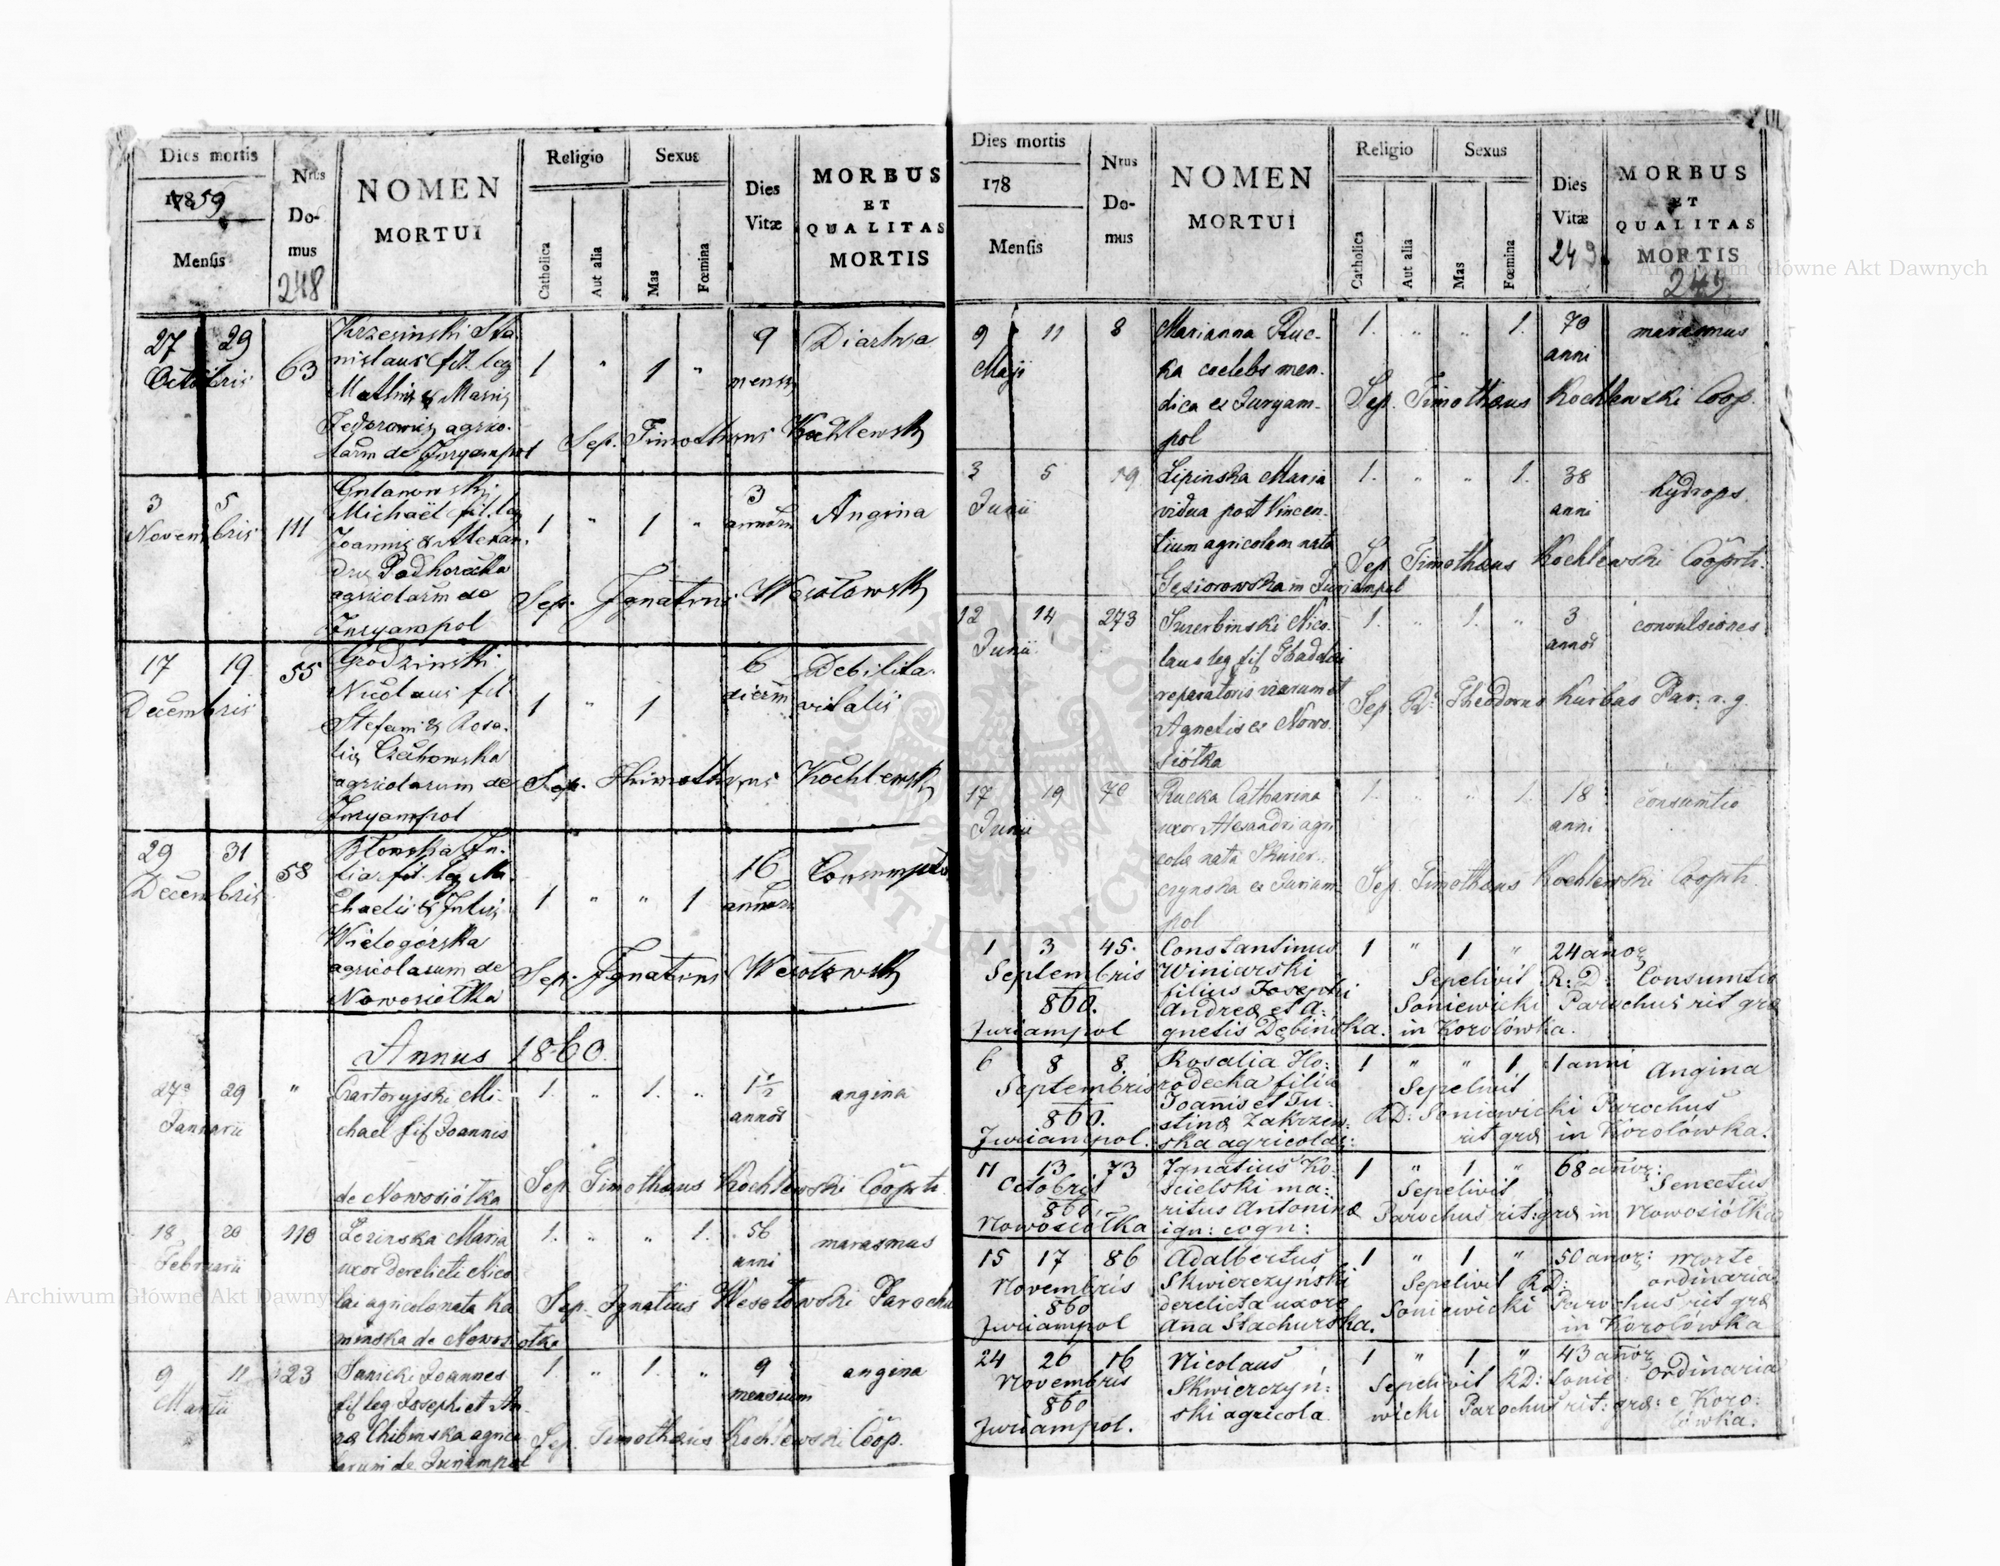 Dies mortis
1859
Mensis
Nrus
Do-
mus
248
NOMEN
MORTUI
Religio
Catholica
Aut alia
Sexus
Mas
Fœmina
Dies
Vitæ
MORBUS
ET
QUALITAS
MORTIS
27 29
Octobris
63
Krzesinski Sta
nislaus fil. leg
Mathiæ & Mariæ
Fedorowicz agrico
larum de Juryampol
1 " 1 "
9
mens
Diarhea
Sep. Timotheus Kochlewski
3 5
Novembris
111
Michaël fil. leg
Joannis & Alexan
dræ Podhorecka
agricolarum de
Juryampol
1 " 1 "
3
annorum
Angina
Sep. Ignatius Wesołowski
17 19
Decembris
55
Grodzinski
Nicolaus fil.
Stefani & Rosa
liæ Czechowska
agricolarum de
Juryampol
1 " 1
6
dierum
Debilita
vitalis
Sep. Thimotheus Kochlewski
29 31
Decembris
58
Błonska Ju
lia fil. leg Mi
chaelis & Juliæ
Wielogórska
agricolarum de
Nowosiołka
1 " " 1
16
annorum
Consumptio
Sep. Ignatius Wesołowski
Annus 1860.
27 29
Januarii
"
Czartoryjski Mi
chael fil Joannis
de Nowosiółka
1. " 1. "
1 1/2
annor
angina
Sep. Timotheus Kochlewski Cooprtr.
18 20
Februarii
110
Lozinska Maria
uxor derelicti Nico
lai agricolæ nata Ka
minska de Nowosiołka
1. " " 1.
56
anni
marasmus
Sep. Ignatius Wesołowski Parochus
9 11
Martii
23
Sanicki Joannes
fil leg Josephi et An
næ Chibinska agrico
larum de Juriampol
1. " 1. "
9
mensium
angina
Sep. Timotheus Kochlewski Coop.
Dies mortis
178
Mensis
Nrus
Do-
mus
NOMEN
MORTUI
Religio
Catholica
Aut alia
Sexus
Mas
Fœmina
Dies
Vitæ
249
MORBUS
ET
QUALITAS
MORTIS
249
9 11
Maji
8
Marianna Ruc-
ka caelebs men-
dica ex Juryam-
pol
1. " " 1.
70
anni
marasmus
Sep. Timotheus Kochlewski Coop.
3 5
Junii
19
Lipinska Maria
vidua post Vincen
tium agricolam nata
Gęsiorowska in Juriampol
1. " " 1.
38
anni
hydrops
Sep Timotheus Kochlewski Cooprtr.
12 14
Junii
273
Szczerbinski Nico
laus leg fil Thaddei
reparatoris viarum et
Agnetis ex Nowo
siółka
1. " 1. "
3
annor
convulsiones
Sep. Theodorus Kurbas Par. r. g.
17 19
Junii
70
Rucka Catharina
uxor Alexandri agri
colæ nata Skwier-
czynska ex Juriam
pol
1. " " 1.
18
anni
consumtio
Sep. Timotheus Kochlewski Cooprtr.
1 3 45.
Septembris
860.
Juriampol
Constantinus
Winiarski
filius Josephi
Andreæ et A:
gnetis Dębińska.
1 " 1 "
24 anor
Consumtio
Sepelivit R: D:
Soniewicki Parochus rit græ
in Korolówka.
6 8 8.
Septembris
860.
Juriampol.
Rosalia Ho:
rodecka filia
Joanis et Ju:
stinæ Zakrzew:
ska agricolar:
1 " " 1
1 anni
Angina
Sepelivit
RD: Soniewicki Parochus
rit græ in Korolówka.
11 13 73
Octobris
860.
Nowosiółka
Ignatius Ko:
scielski ma:
ritus Antoninæ
ign: cogn:
1 " 1 "
68 anor:
Senectus
Sepelivit
Parochus rit: græ in Nowosiółka
15 17 86
Novembris
860
Juriampol
Adalbertus
Skwierczyński
derelicta uxore
Ana Stachurska.
1 " 1 "
50 anor:
Morte
ordinaria
Sepelivit RD:
Soniewicki Parochus rit græ
in Korolówka
24 26 16
Novembris
860
Juriampol.
Nicolaus
Skwierczyń:
ski agricola.
1 " 1 "
43 anor
Ordinaria
Sepelivit RD: Sonie-
wicki Parochus rit: græ: e Koro:
lówka.
Archiwum Główne Akt Dawnych
Archiwum Główne Akt Dawnych
ARCHIWUM GŁÓWNE AKT DAWNYCH